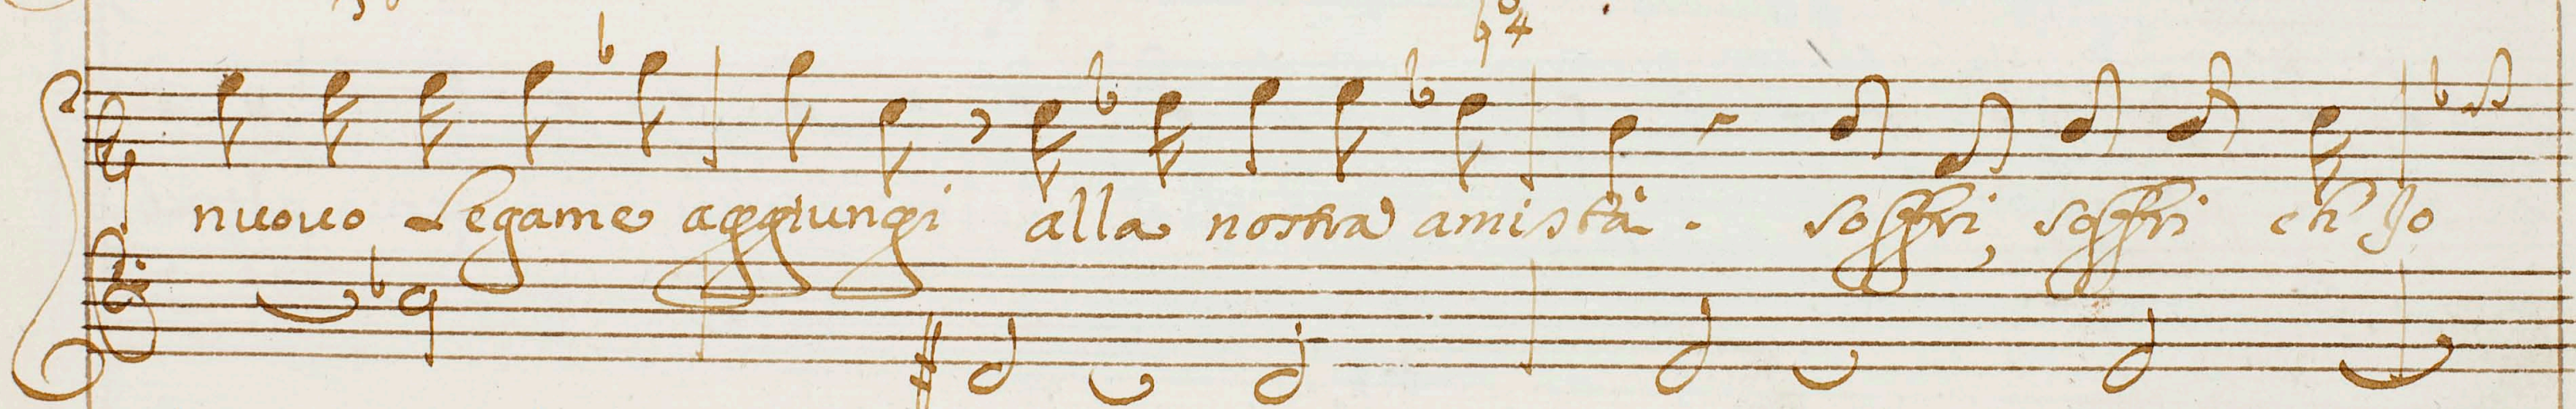 nuouo Legame aggiungi alla nostra amistà. soffri, soffri ch'Io